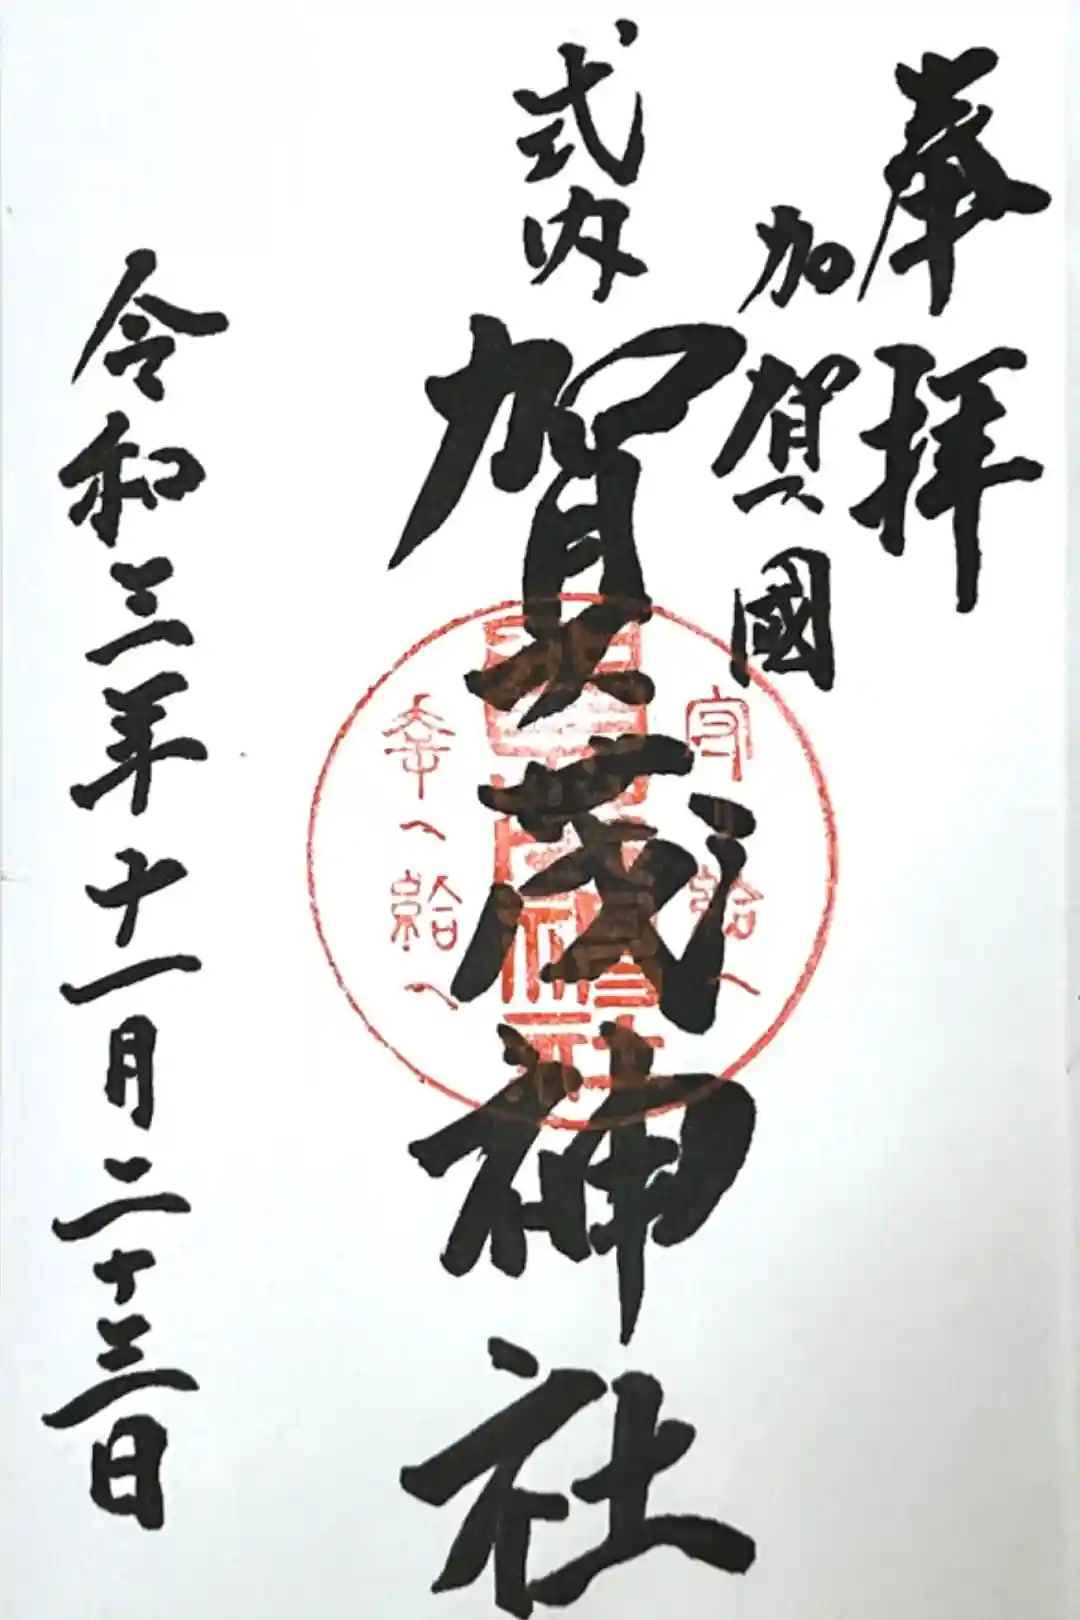 奉拝
加賀國
式内
賀茂神社
守給へ
幸へ給へ
令和三年十一月二十三日